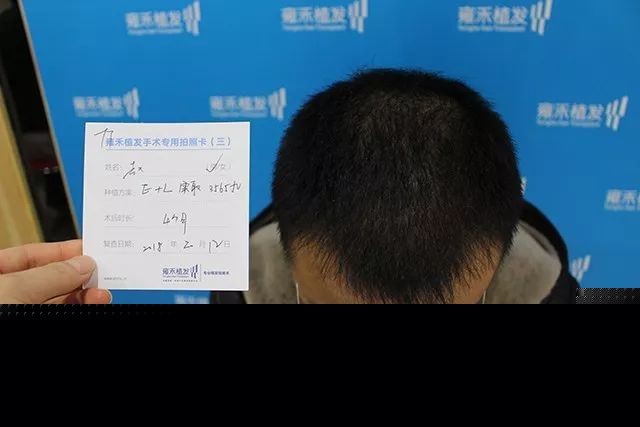 雍禾植发
雍禾植发
雍禾植发
雍禾植发
雍禾植发
雍禾植发
雍禾植发手术专用拍照卡（三）
姓名： （男/女）
种植方案： E+L 3565
术后时长： 4个月
复查日期： 2018 年 2 月 12 日
雍禾植发
雍禾植发